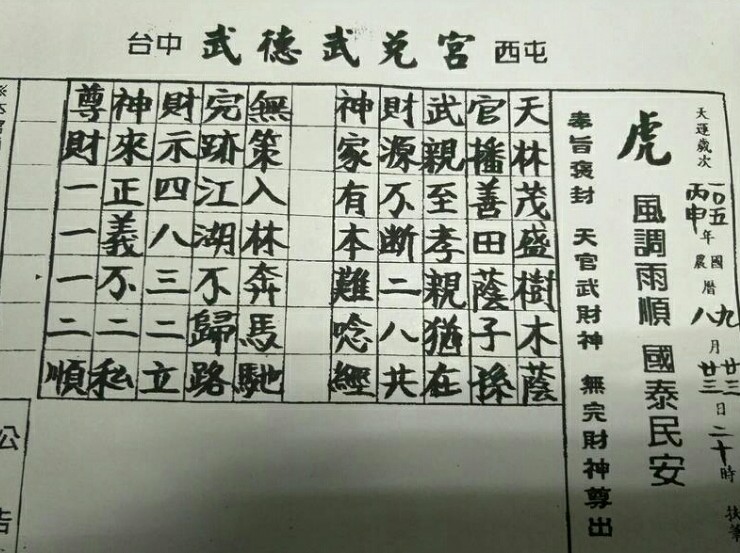 台中 武德武兌宮 西屯
天運歲次 一〇五 丙申 年 國農 曆 九八 月 廿三 廿三 日 二十 時
虎 風調雨順 國泰民安
奉旨褒封 天官武財神 無完財神尊出
天林茂盛樹木蔭
官播善田蔭子孫
武親至孝親猶在
財源不斷二八共
神家有本難唸經
無策入林奔馬馳
完跡江湖不歸路
財示四八三二立
神來正義不二私
尊財一一一二順
公告